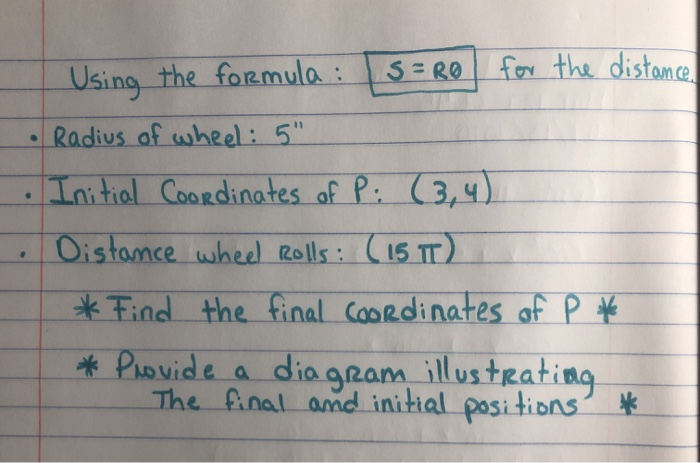 Using the formula: S = Rθ for the distance.
• Radius of wheel: 5"
• Initial Coordinates of P: (3,4)
• Distance wheel Rolls: (15 π)
* Find the final coordinates of P *
* Provide a diagram illustrating
The final and initial positions *